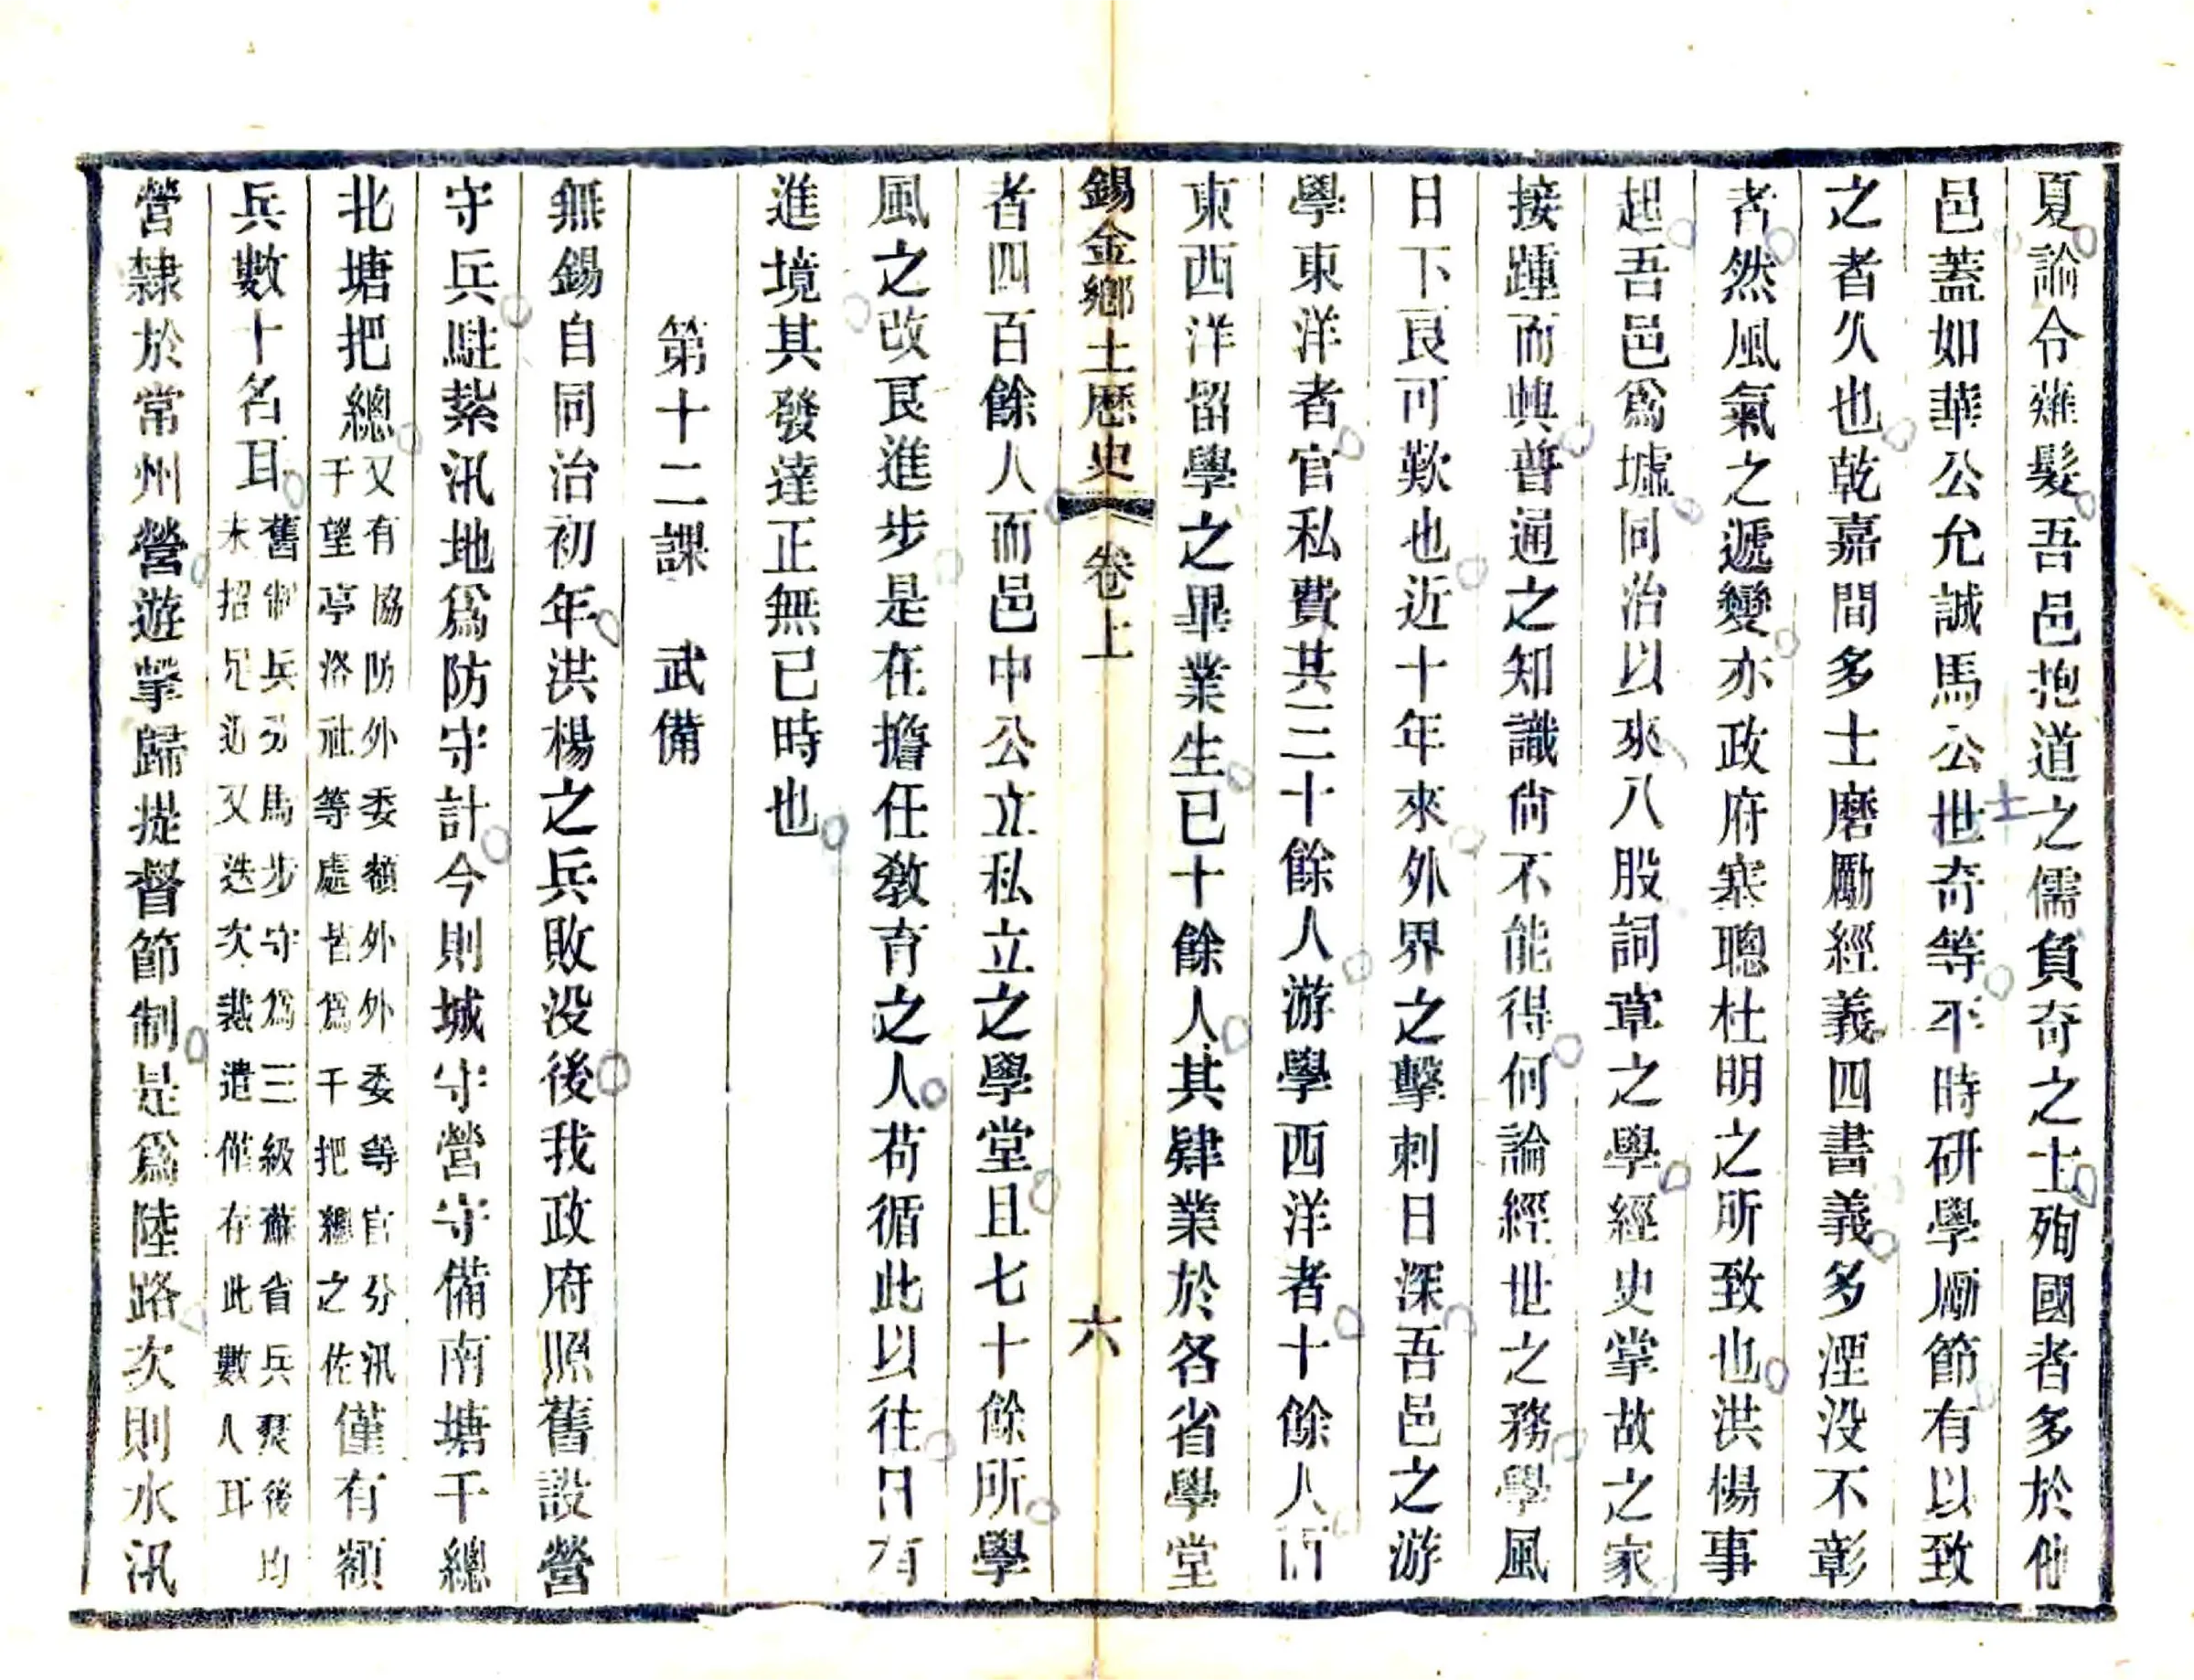 夏論令薙髮吾邑抱道之儒負奇之士殉國者多於他
邑蓋如華公允誠馬公世奇等平時研學厲節有以致
之者久也乾嘉間多士磨勵經義四書義多湮没不彰
者然風氣之遞變亦政府塞聰杜明之所致也洪楊事
起吾邑爲墟同治以來八股詞章之學經史掌故之家
接踵而興普通之知識尙不能得何論經世之務學風
日下良可歎也近十年來外界之擊刺日深吾邑之游
學東洋者官私費共三十餘人游學西洋者十餘人而
東西洋留學之畢業生已十餘人其肄業於各省學堂
錫金鄉土歷史 卷上 六
者四百餘人而邑中公立私立之學堂且七十餘所學
風之改良進步是在擔任敎育之人苟循此以往日有
進境其發達正無已時也
第十二課 武備
無錫自同治初年洪楊之兵敗没後我政府照舊設營
守兵駐紮汛地爲防守計今則城守營守備南塘千總
北塘把總又有協防外委額外外委等官分汛
于望亭洛社等處皆爲千把總之佐僅有額
兵數十名耳舊制兵分馬步守爲三級蘇省兵燹後均
未招足迨又迭次裁遣僅存此數人耳
營隸於常州營遊擊歸提督節制是爲陸路次則水汛